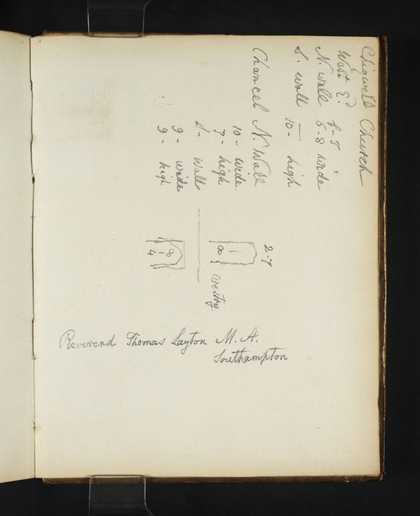 Chigwell Church
West E.
N. wall 4-5
5-8 wide
S. wall 10 - high
Chancel N. Wall
10 - wide
7 - high
S - Wall
9 - wide
9 - high
2.7
8
vestry
8
4
Reverend Thomas Layton M. A.
Southampton